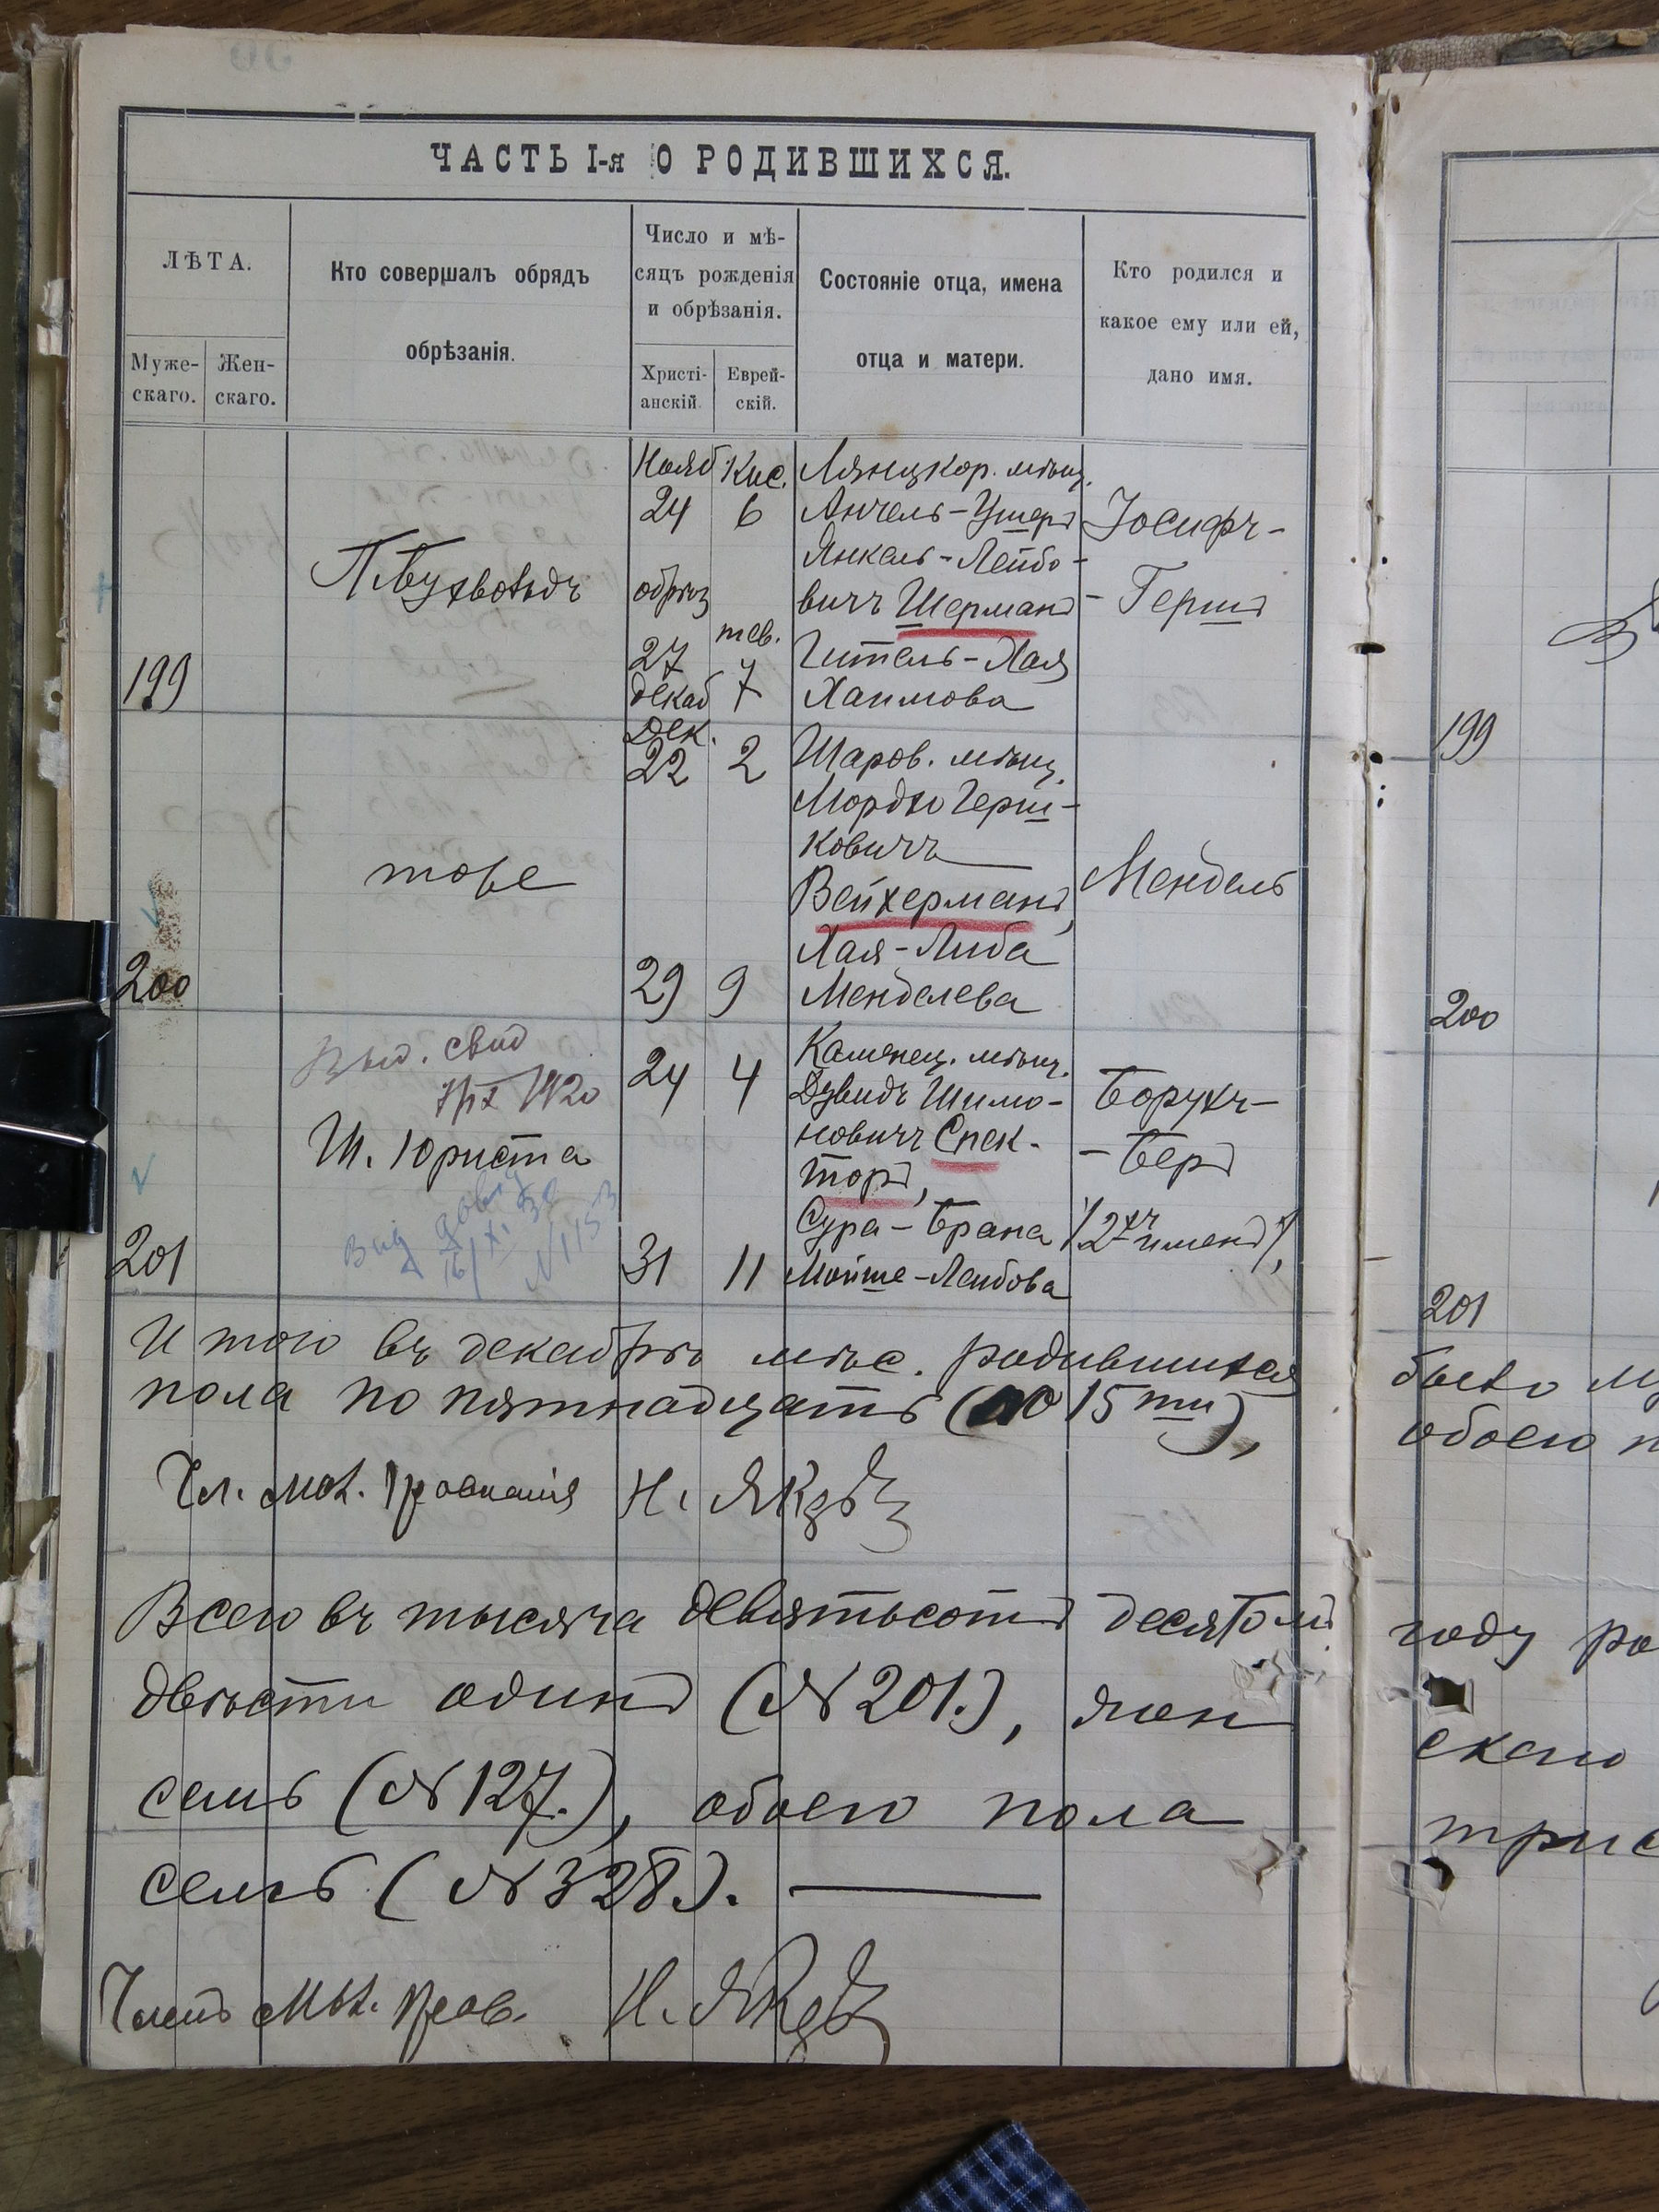 ЧАСТЬ I-я О РОДИВШИХСЯ.
ЛѢТА.
Муже-
скаго.
Жен-
скаго.
Кто совершалъ обрядъ
обрѣзанія.
Число и мѣ-
сяцъ рожденія
и обрѣзанія.
Христі-
анскій.
Еврей-
скій.
Состояніе отца, имена
отца и матери.
Кто родился и
какое ему или ей,
дано имя.
199
Нояб
24
обрѣз
27
декаб
Кис.
6
тев.
7
Лянцкор. мѣщ.
Анчель-Ушеръ
Янкель-Лейбо-
вичъ Шерманъ
Гитель-Хая
Хаимова
Іосифъ-
-Гершъ
200
тоже
Дек.
22
2
29
9
Шаров. мѣщ.
Мордко Герш-
ковичъ
Вейхерманъ,
Хая-Либа
Менделева
Мендель
201
Выд. свид
1920
Ш. Юриста
24
4
31
11
Каменец. мѣщ.
Дувидъ Шимо-
новичъ Спек-
торъ,
Сура-Брана
Мойше-Леибова
Борухъ-
-Беръ
/2хъ именъ/,
Итого въ декабрѣ мѣс. родившихся
пола по пятнадцать (по 15ти),
Чл. Мѣщ. Правленія Н.
Всего въ тысяча девятьсотъ десятомъ
двѣсти одинъ (№ 201.), жен
семь (№ 127.), обоего пола
семь (№ 328.).
Членъ Мѣщ. Прав. Н.
199
200
201
было
обоего
году ро
скаго
трис